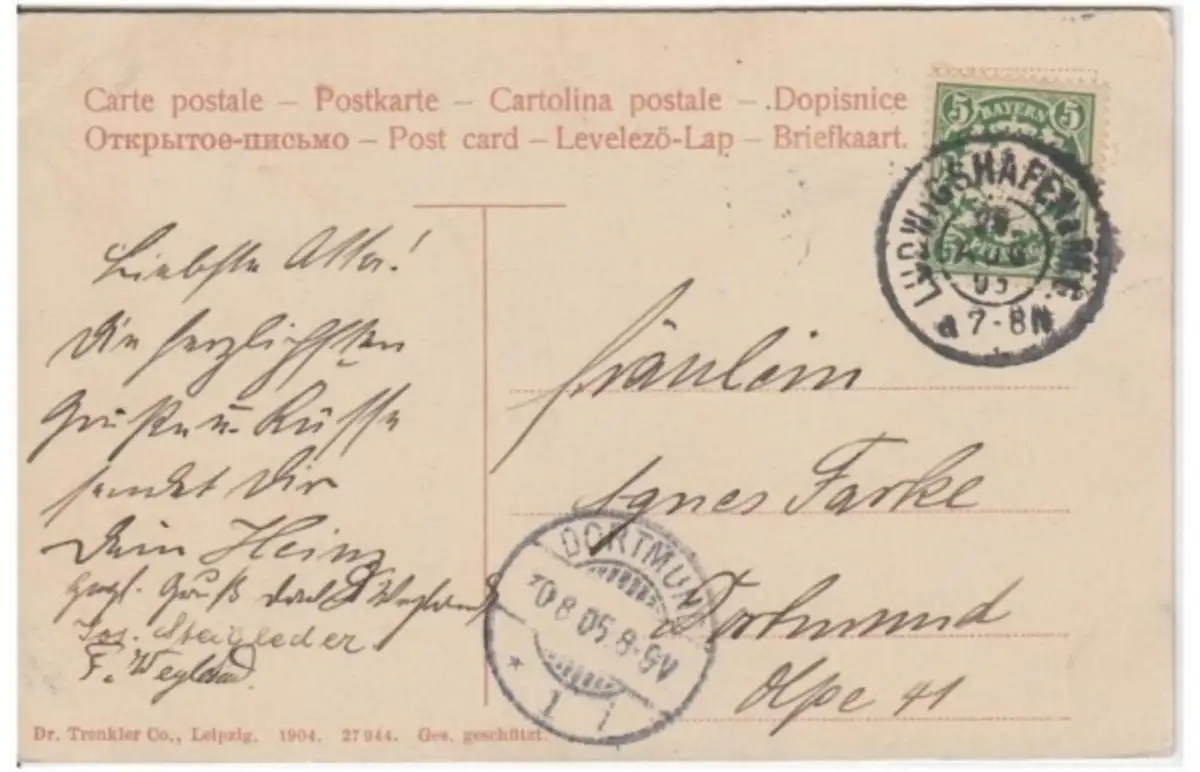 Carte postale – Postkarte – Cartolina postale – Dopisnice
Открытое-письмо – Post card – Levelező-Lap – Briefkaart.
5 BAYERN 5
LUDWIGSHAFEN a. RH.
AUG
05
7-8N
Liebste
Die herzlichsten
Grüße u. Küsse
sendet Dir
Dein Heinz
Fräulein
Agnes Farke
Dortmund
Olpe 41
DORTMUND
8 05. 8-9V
* 1
Gruß
Jos. Steigleder
F. Weyland.
Dr. Trenkler Co., Leipzig. 1904. 27944. Ges. geschützt.